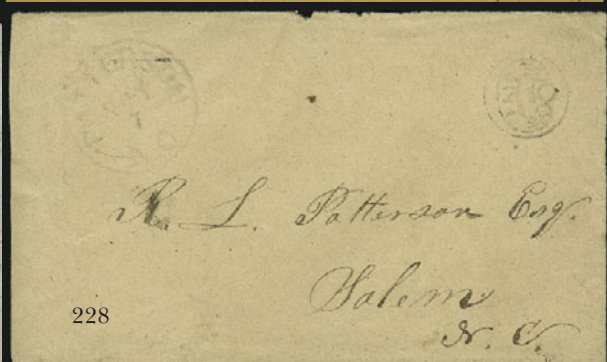 R. L. Patterson Esq.
Salem
N. C.
228